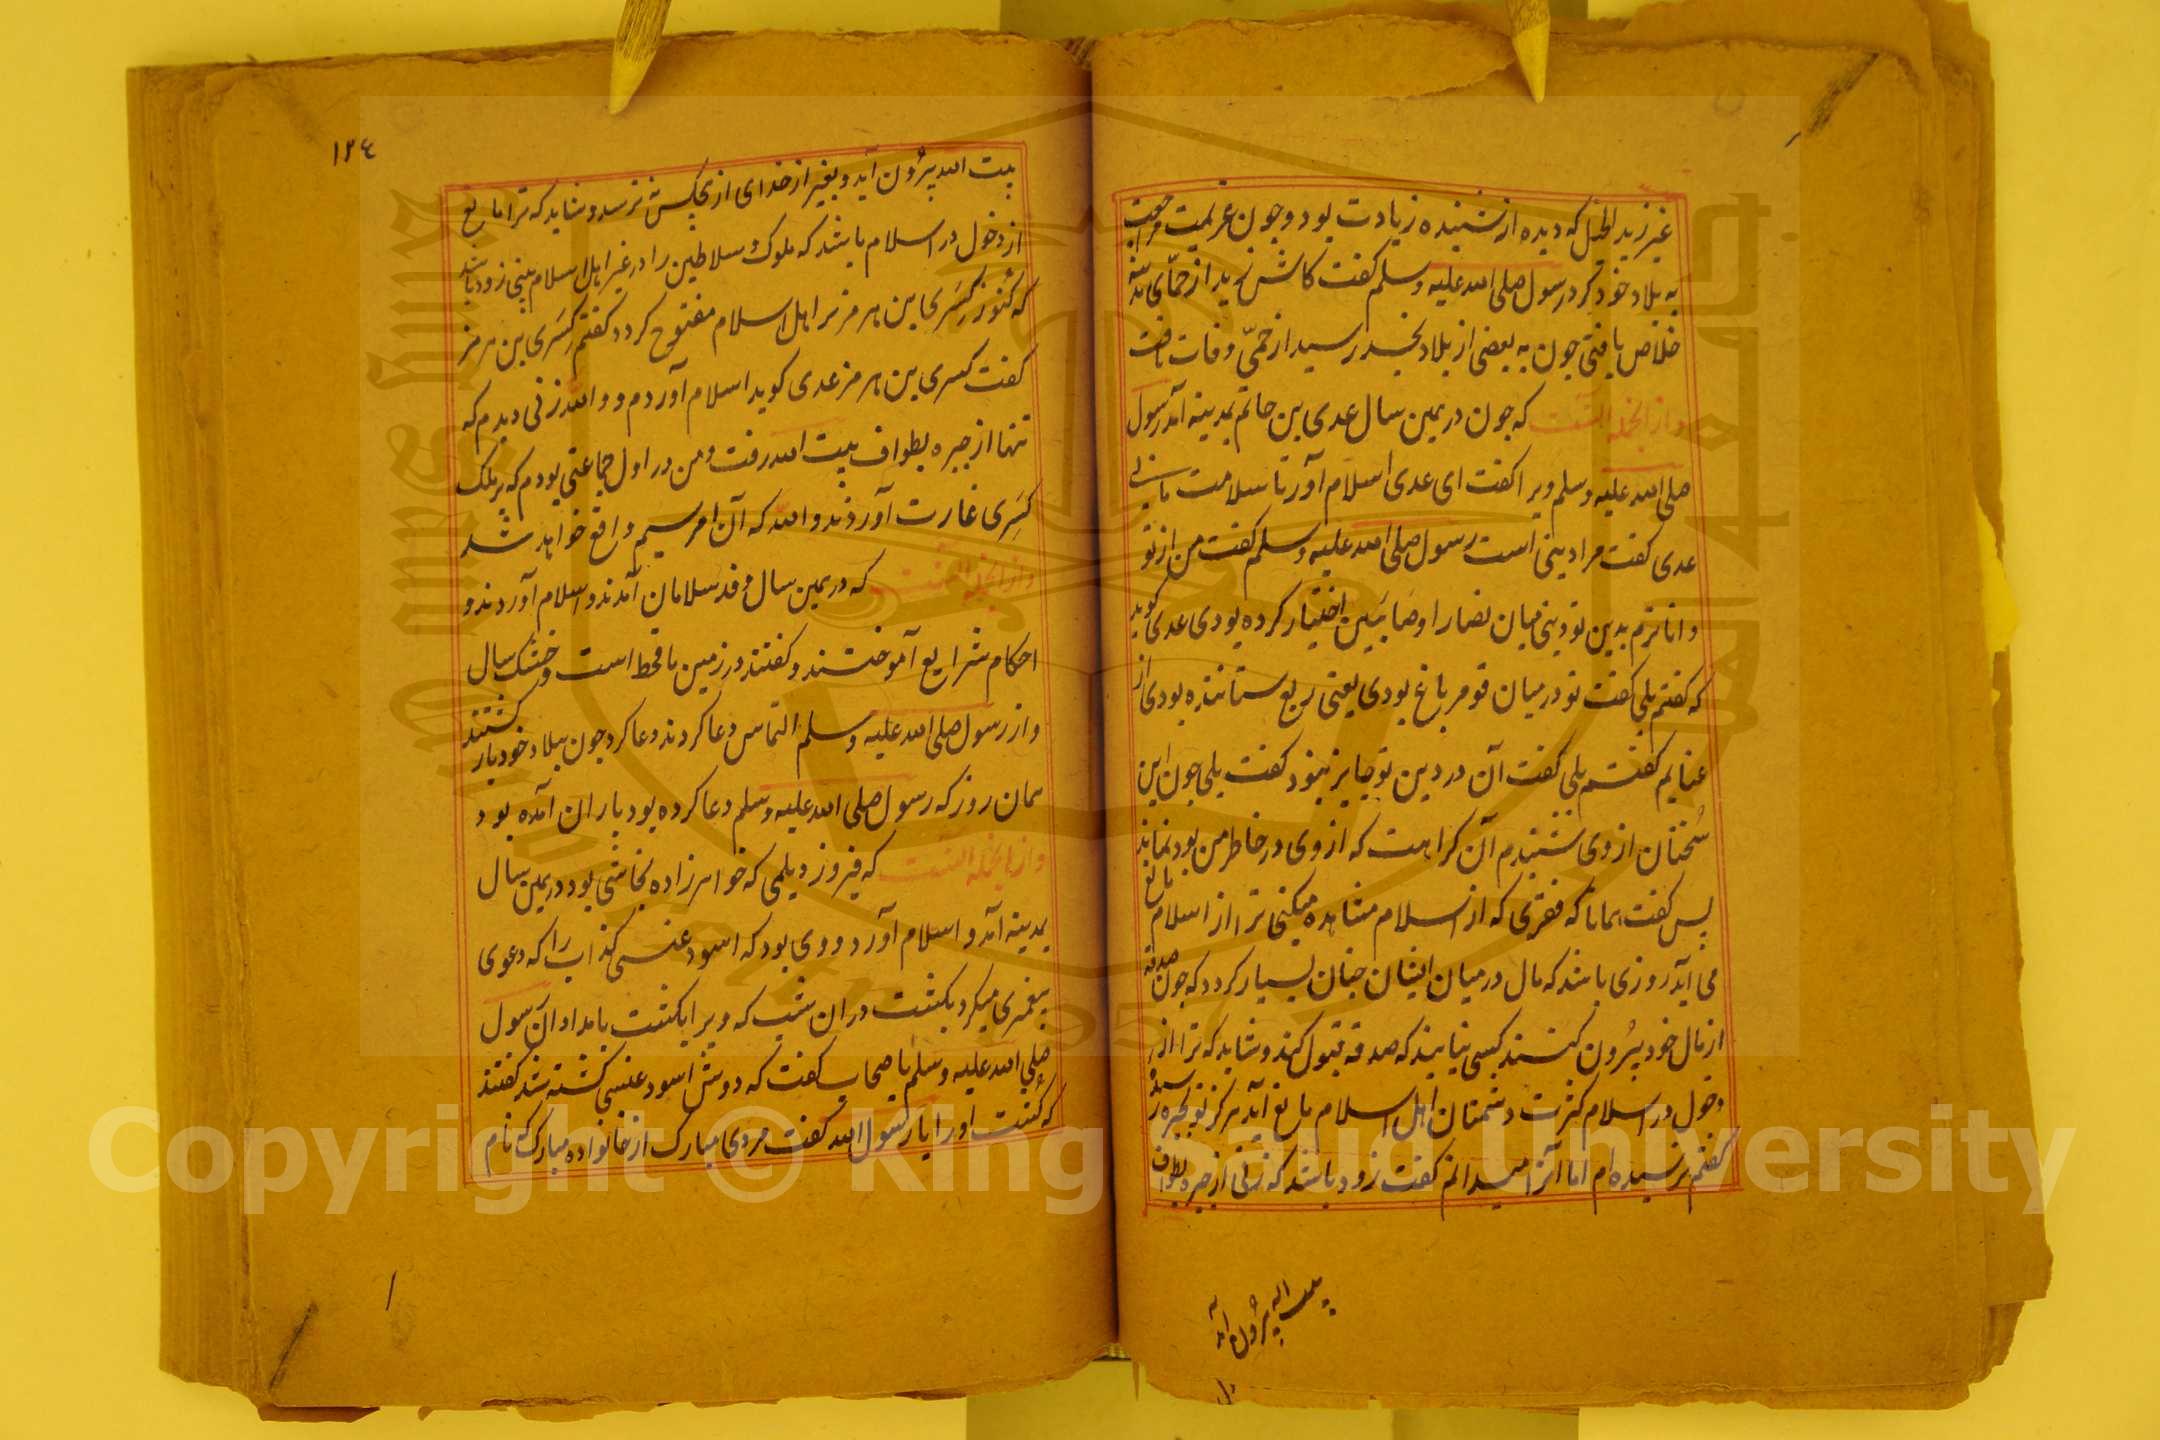 غیر زید الخیل که دیده از شنیده زیادت بود و چون عزیمت مراجعت
به بلاد خود کرد رسول صلی الله علیه وسلم گفت کاش زید از حمّای مدینه
خلاص یافتی چون به بعضی از بلاد نجد رسید از حمّی وفات یافت
و از انجمله آنست که چون درین سال عدی بن حاتم بمدینه آمد رسول
صلی الله علیه وسلم ویرا گفت ای عدی اسلام آور تا سلامت یابی
عدی گفت مرا دینی است رسول صلی الله علیه وسلم گفت من از تو
داناترم بدین تو دینی میان نصارا و صابئین اختیار کرده بودی عدی گوید
که گفتم بلی گفت تو در میان قوم مرباع بودی یعنی ربع ستاننده بودی از
غنایم گفتم بلی گفت آن در دین تو جایز نبود گفت بلی چون این
سخنان از وی شنیدم آن کراهت که از وی در خاطر من بود نماند
پس گفت همانا که فقری که از اسلام مشاهده میکنی ترا از اسلام مانع
می آید روزی باشد که مال در میان ایشان چنان بسیار گردد که چون صدقه
از مال خود بیرون کنند کسی نیابند که صدقه قبول کند و شاید که ترا از
دخول در اسلام کثرت دشمنان اهل اسلام مانع آید هرگز تو بحیره رسیده
گفتم نرسیده ام اما آنرا میدانم گفت زود باشد که زنی از حیره بطواف
بیت الله بیرون آید
۱۳٤
بیت الله بیرون آید و بغیر از خدای از هیچکس نترسد و شاید که ترا مانع
از دخول در اسلام باشد که ملوک و سلاطین را در غیر اهل اسلام بینی زود باشد
که کنوز کسری بن هرمز بر اهل اسلام مفتوح گردد گفتم کسری بن هرمز
گفت کسری بن هرمز عدی گوید اسلام آوردم و والله زنی دیدم که
تنها از حیره بطواف بیت الله رفت و من در اول جماعتی بودم که بر ملک
کسری غارت آوردند والله که آن امر سیم واقع خواهد شد
و از انجمله آنست که درین سال وفد سلامان آمدند و اسلام آوردند و
احکام شرایع آموختند و گفتند در زمین ما قحط است و خشک سال
و از رسول صلی الله علیه وسلم التماس دعا کردند دعا کرد چون ببلاد خود باز گشتند
همان روز که رسول صلی الله علیه وسلم دعا کرده بود باران آمده بود
و از انجمله آنست که فیروز دیلمی که خواهرزاده نجاشی بود درین سال
بمدینه آمد و اسلام آورد و وی بود که اسود عنسی کذاب را که دعوی
پیغمبری میکرد بکشت در ان شب که ویرا بکشت بامداد آن رسول
صلی الله علیه وسلم با صحاب گفت که دوش اسود عنسی کشته شد گفتند
که کشت اورا یا رسول الله گفت مردی مبارک از خانواده مبارک که نام
Copyright © King Saud University